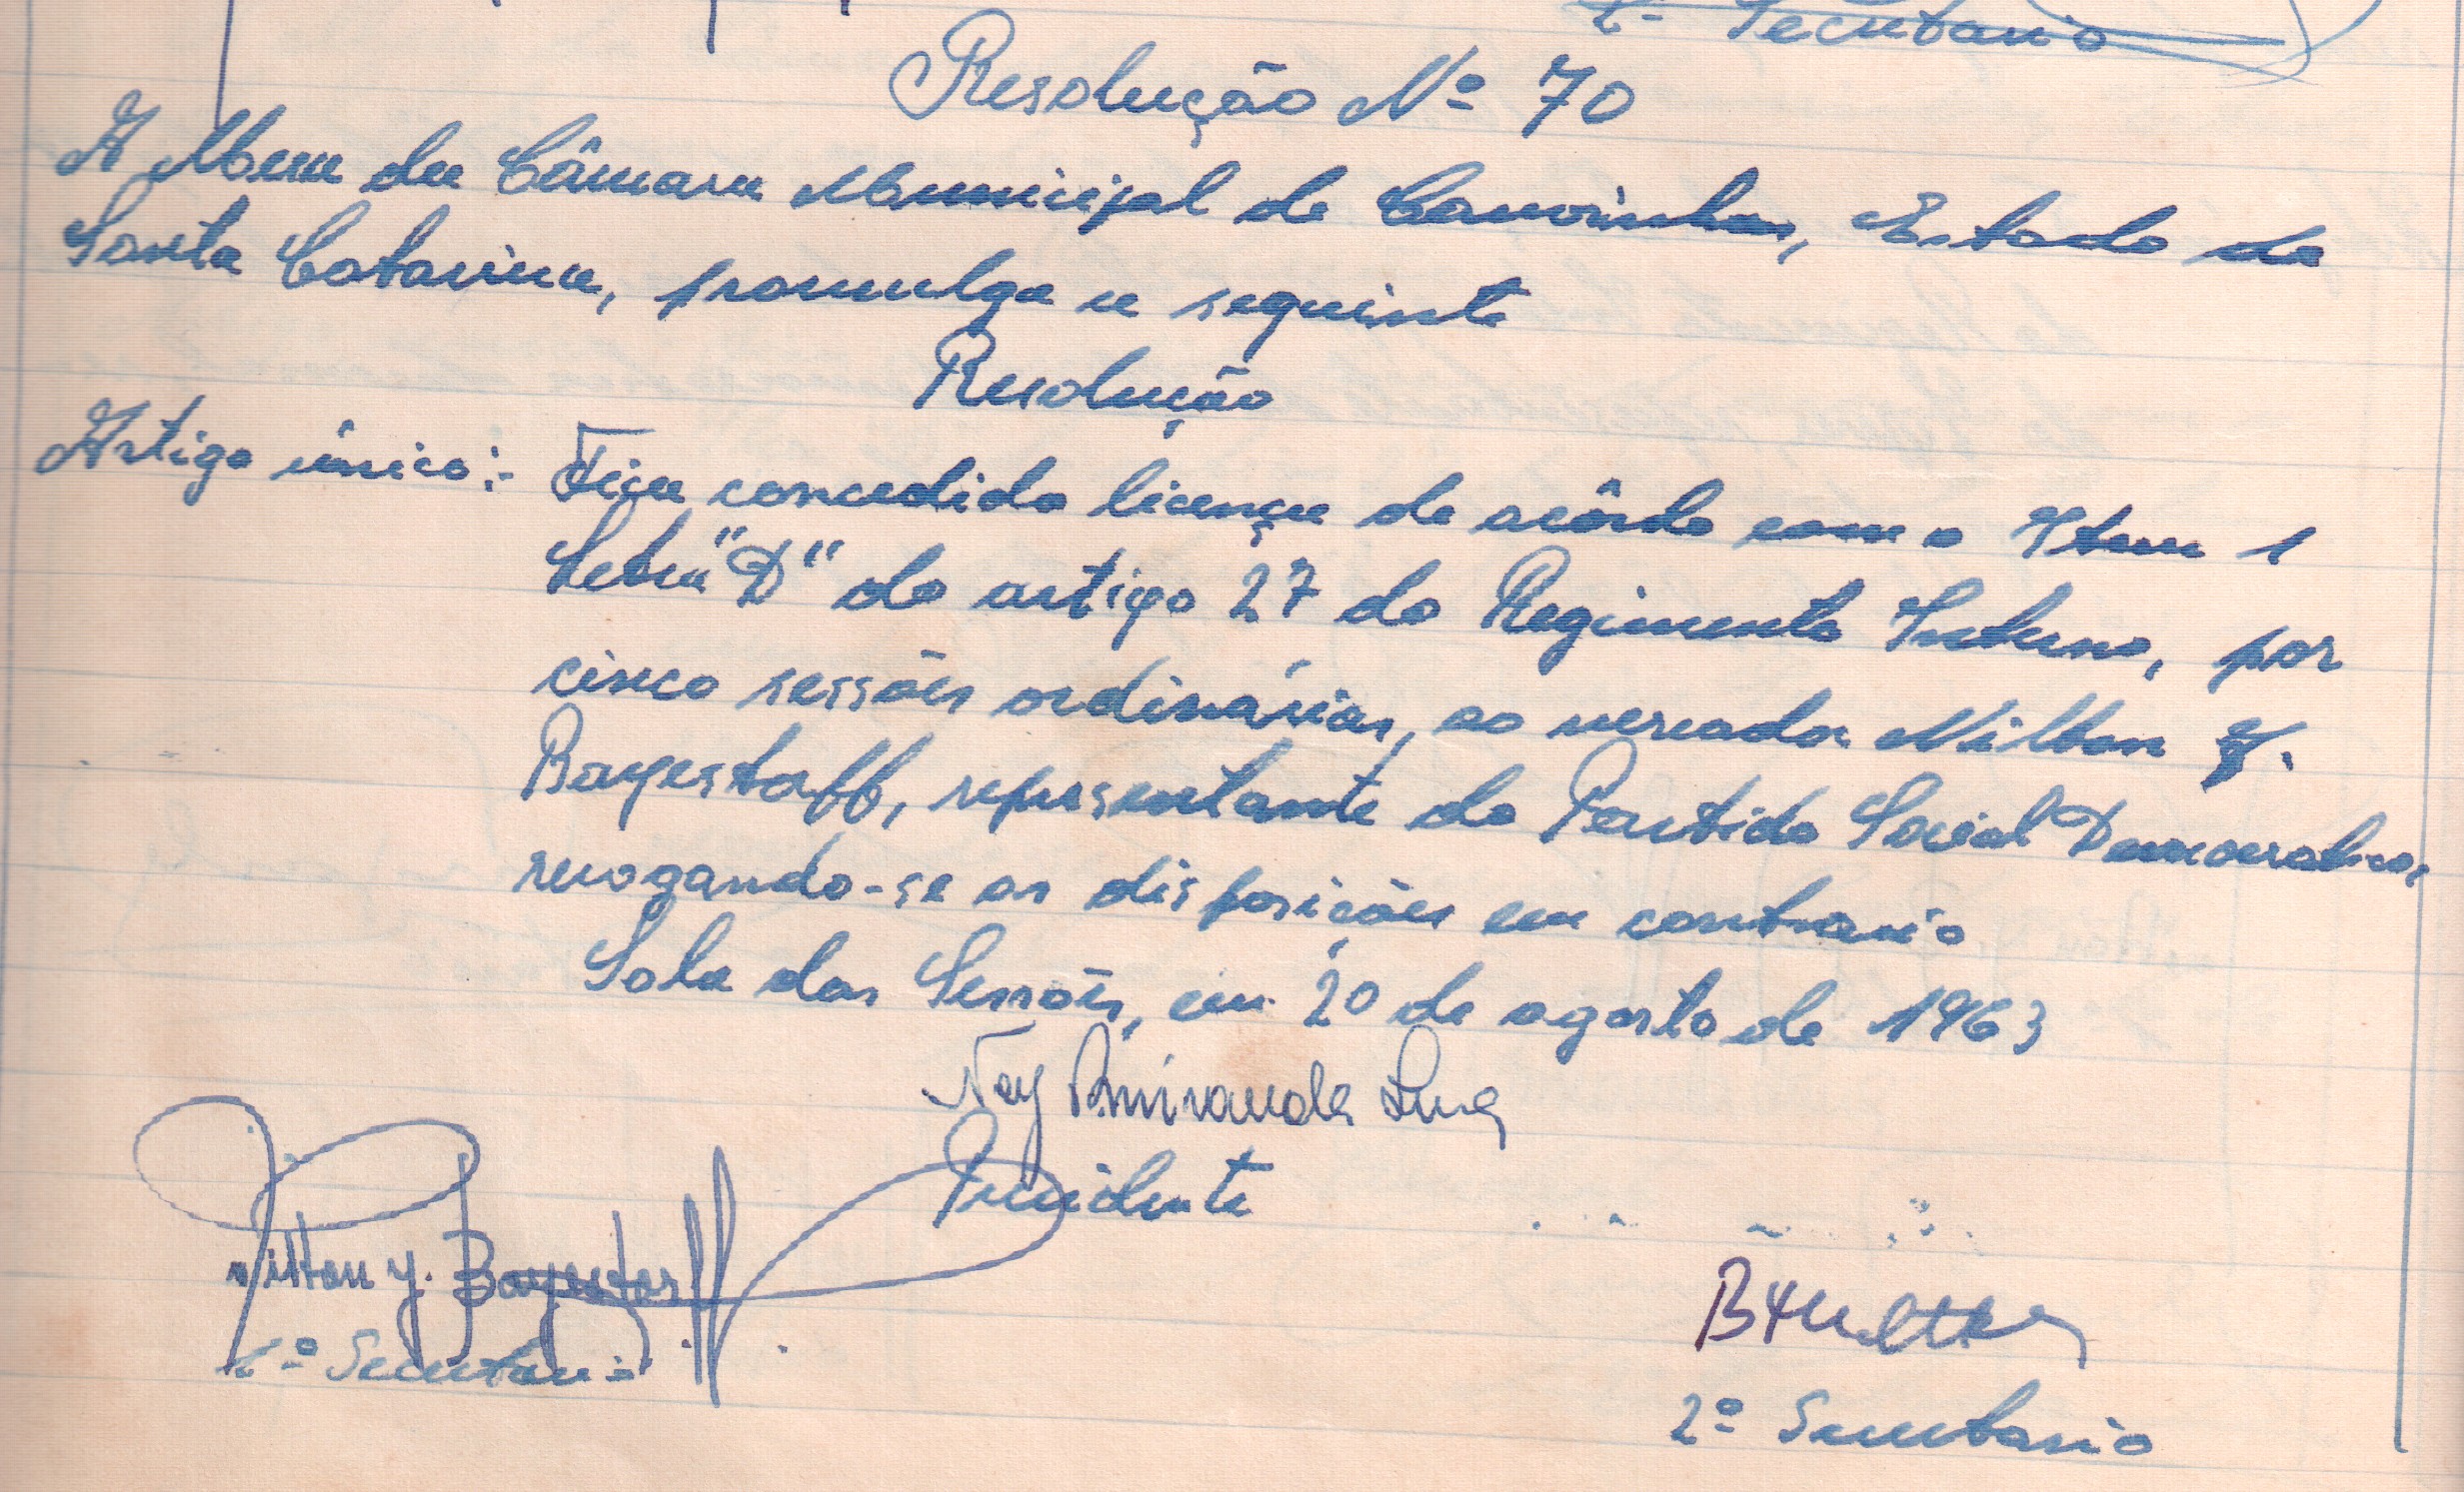 2º Secretario
Resolução Nº 70
A Mesa da Câmara Municipal de Canoinhas, Estado de
Santa Catarina, promulga a seguinte
Resolução
Artigo único:- Fica concedido licença de acôrdo com o Item 1
Letra "D" do artigo 27 do Regimento Interno, por
cinco sessões ordinárias, ao vereador Nilton Y.
Bayestorff, representante do Partido Social Democratico,
revogando-se as disposições em contrario
Sala das Sessões, em 20 de agosto de 1963
Ney Miranda
Presidente
Nilton Y. Bayestorff
1º Secretario
2º Secretario